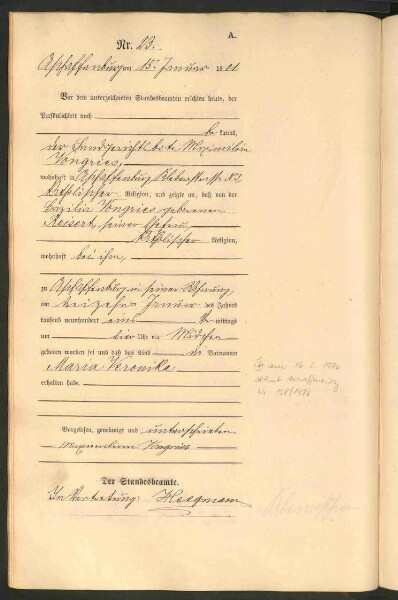 A.
Nr. 23.
Aschaffenburg am 15. Januar 1901
Vor dem unterzeichneten Standesbeamten erschien heute, der
Persönlichkeit nach
be kannt,
der Landgerichtsbote Maximilian
Vongries,
wohnhaft in Aschaffenburg
katholischer Religion, und zeigte an, daß von der
Cäzilia Vongries geborenen
Reisert, seiner Ehefrau,
katholischer Religion,
wohnhaft bei ihm,
zu Aschaffenburg in seiner Wohnung,
am Januar des Jahres
tausend neunhundert eins Vor mittags
um vier Uhr ein Mädchen
geboren worden sei und daß das Kind die Vornamen
Maria Veronika
erhalten habe.
Vorgelesen, genehmigt und unterschrieben
Maximilian Vongries
Der Standesbeamte.
In Vertretung: Heegmann
am 16. 1976
Aschaffenburg
Nr.